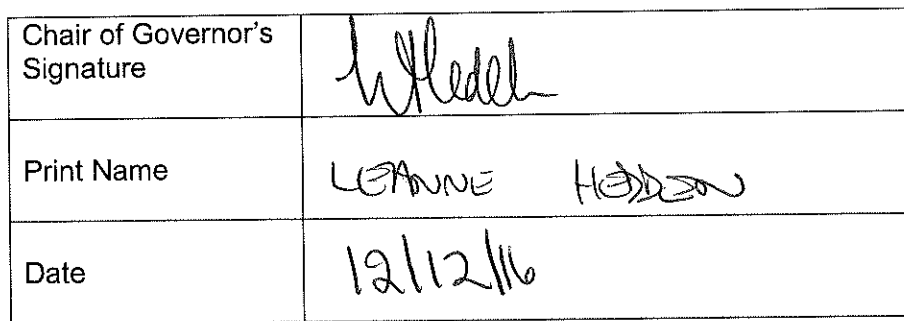 Chair of Governor's
Signature
Print Name
LEANNE HEDDEN
Date
12/12/16